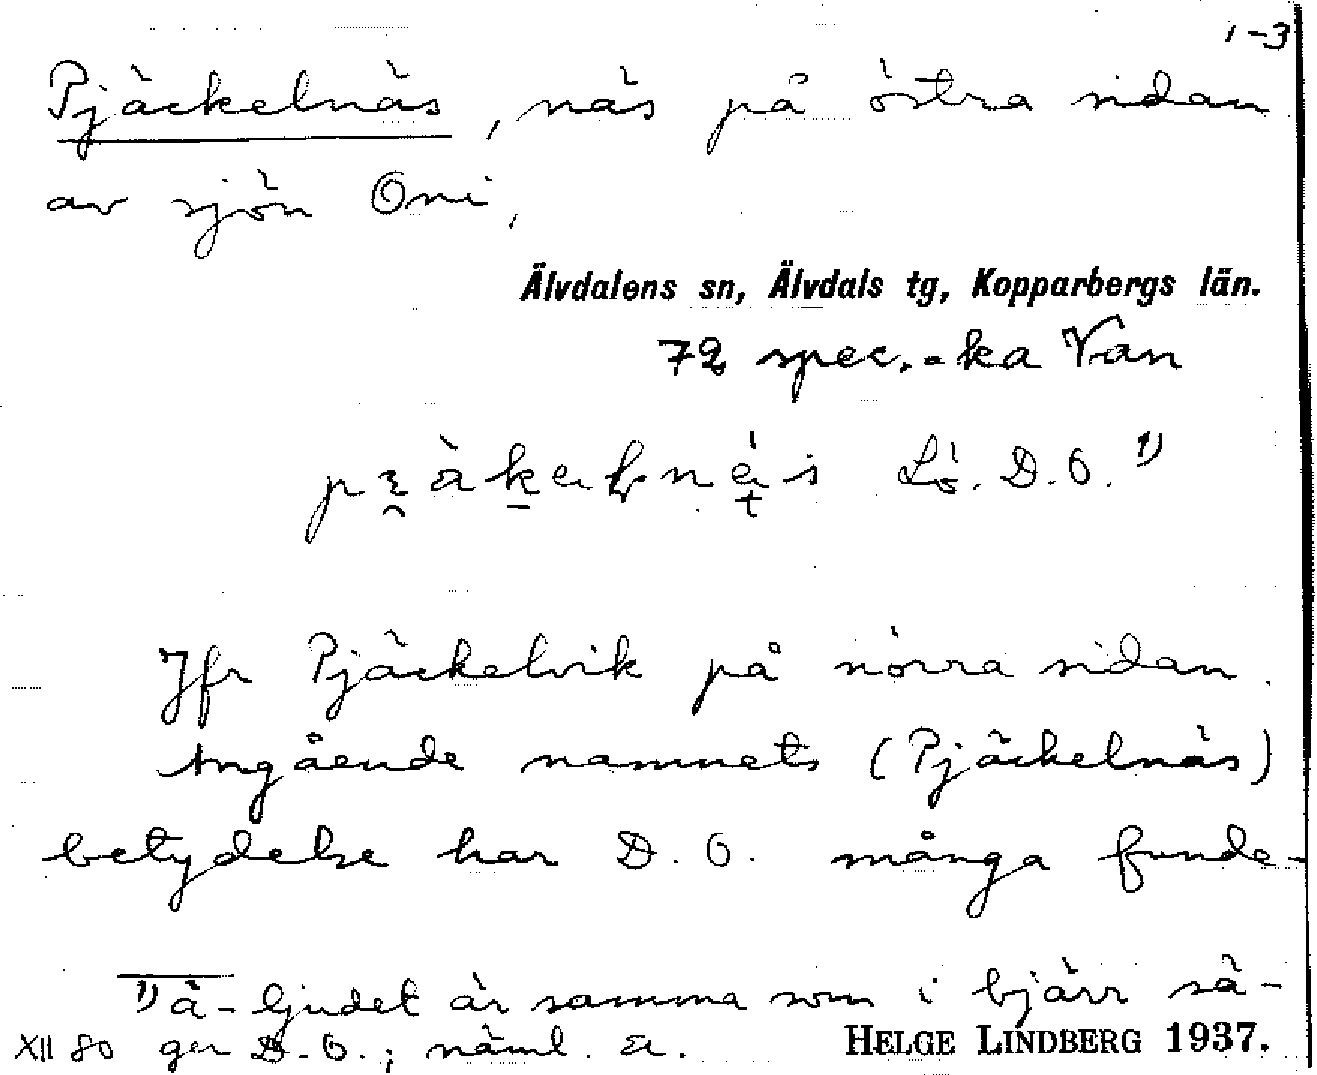 1-3
Pjäckelnäs, näs på östra sidan
av sjön Oni,
Älvdalens sn, Älvdals tg, Kopparbergs län.
72 spec.-ka Van
Lö. D.O. 1)
Jfr Pjäckelvik på norra sidan.
Angående namnets (Pjäckelnäs)
betydelse har D.O. många funde-
1) ä-ljudet är samma som i bjärr sä-
XII 80 ger D.O.; näml. a.
HELGE LINDBERG 1937.